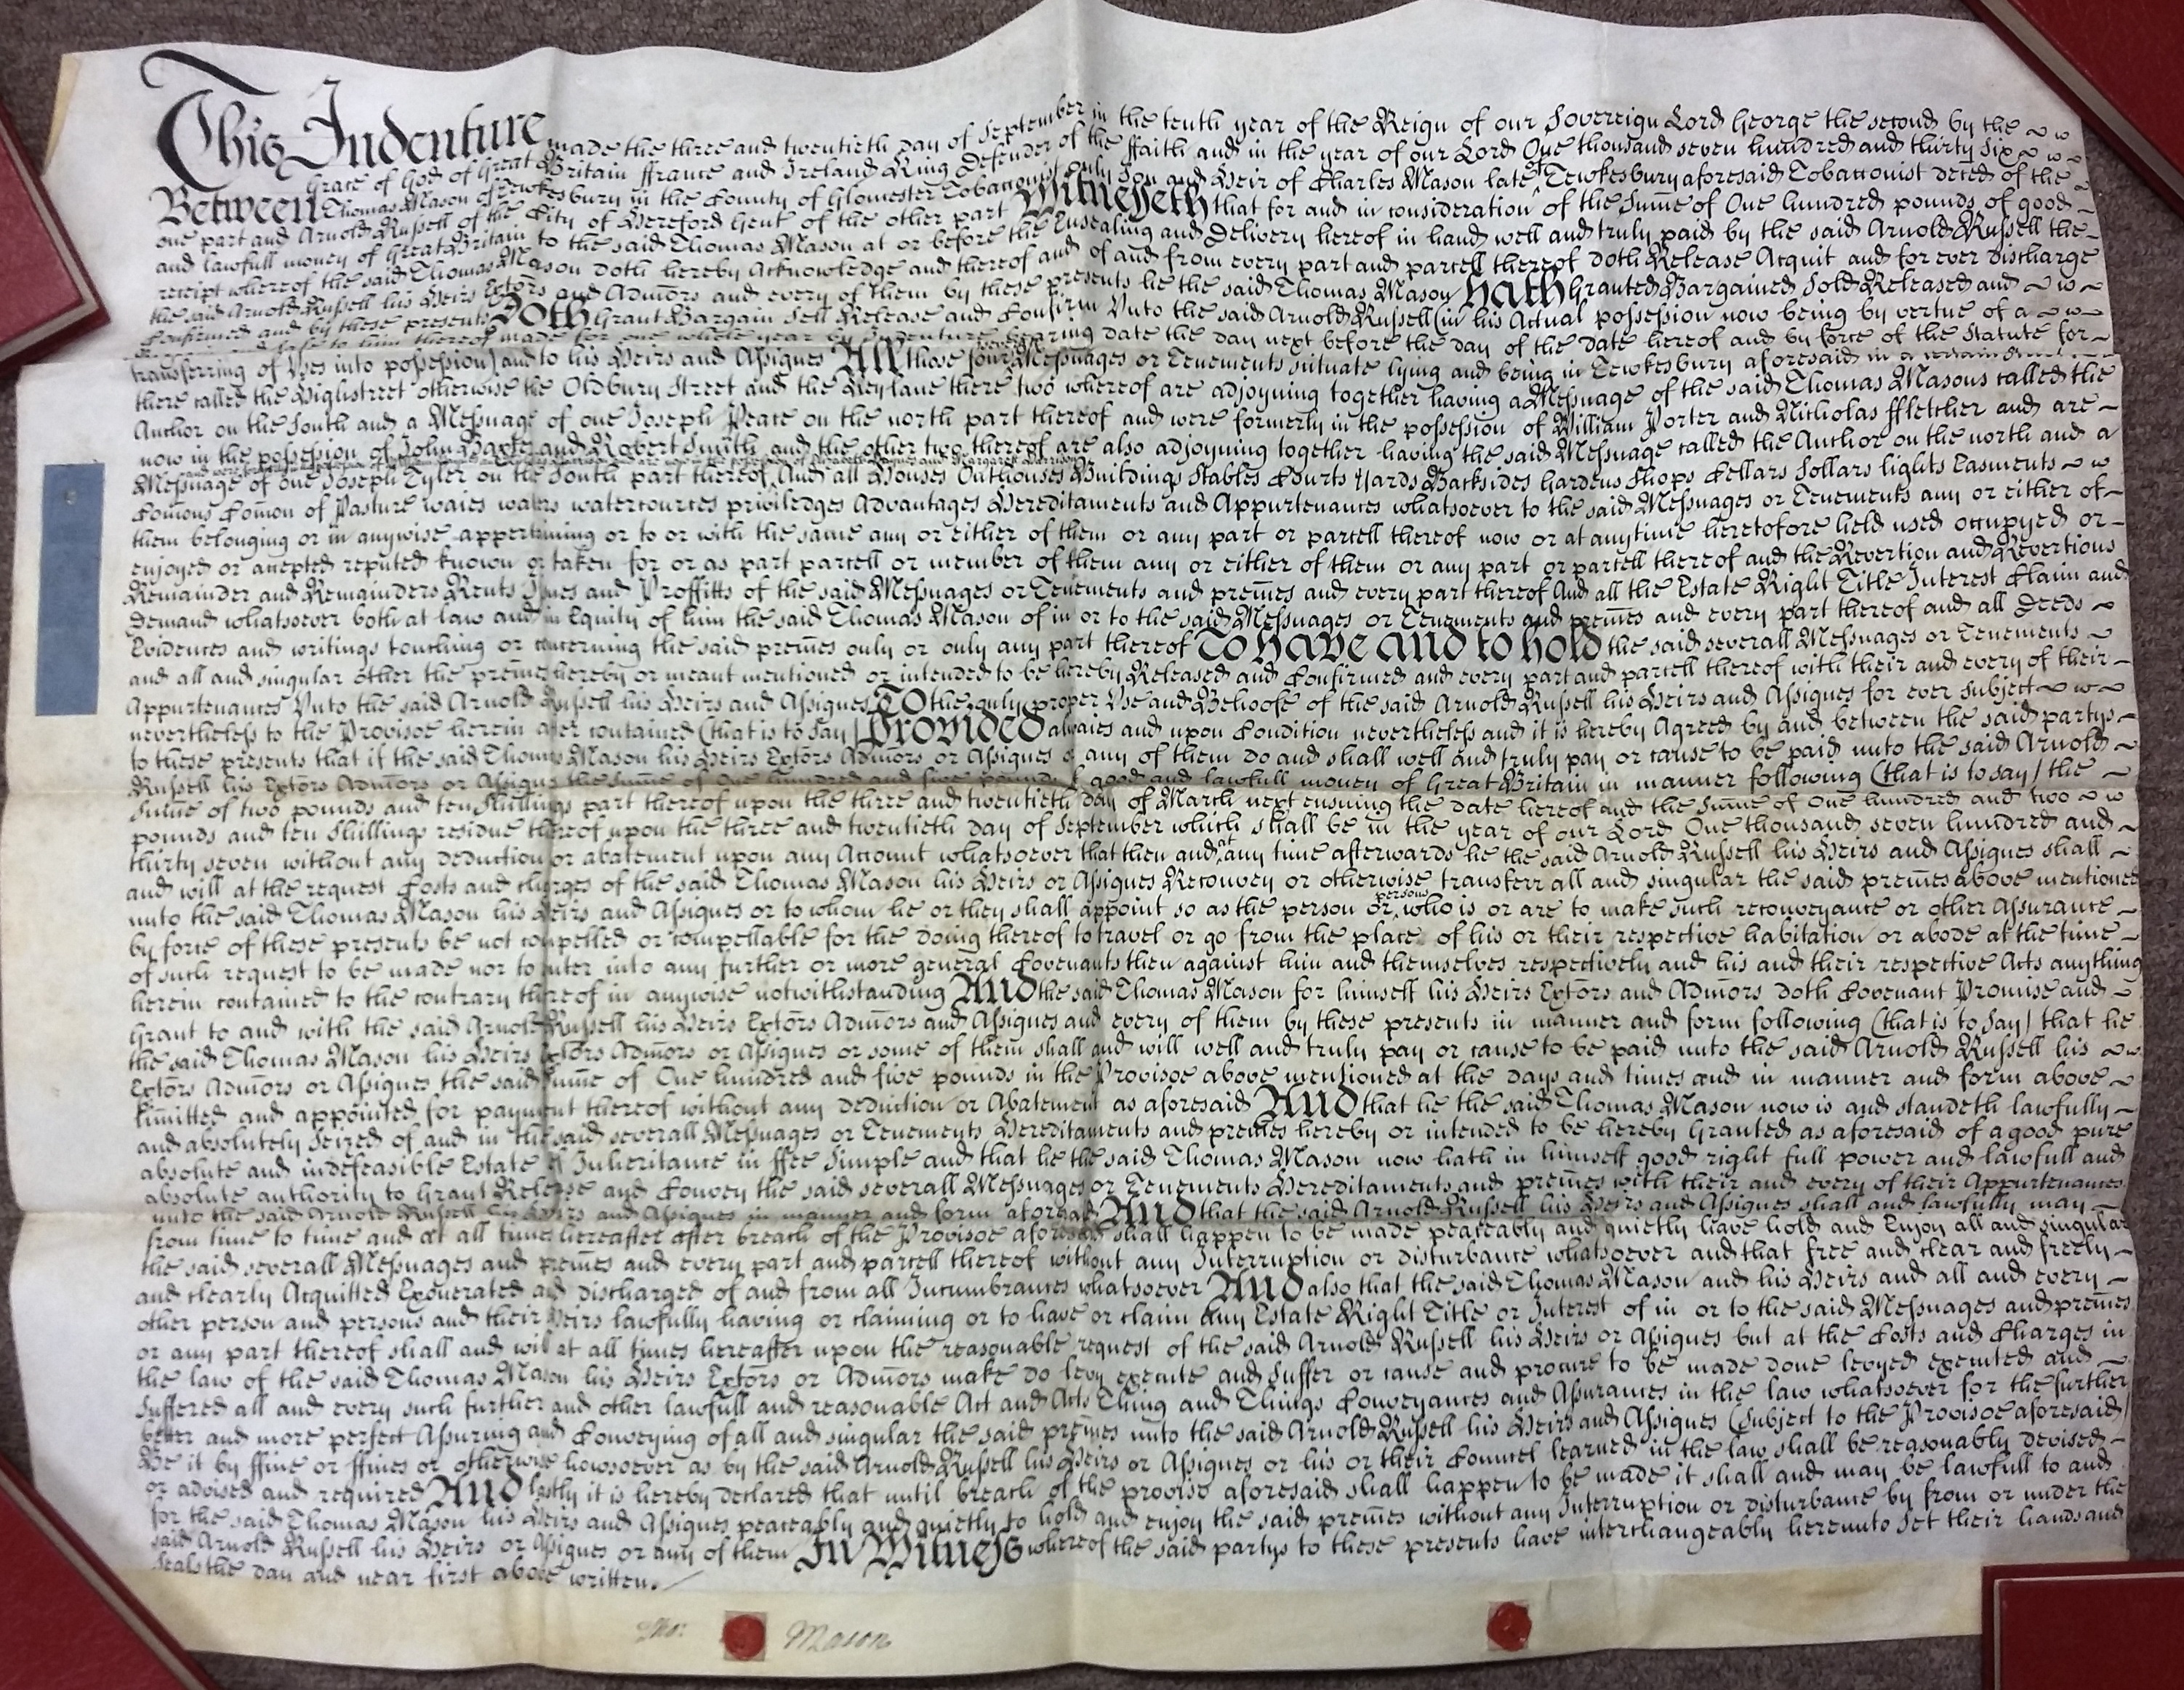 This Indenture made the three and twentieth day of September in the tenth year of the Reign of our Sovereign Lord George the second by the
Grace of God of Great Britain ffrance and Ireland King Defender of the ffaith and in the year of our Lord One thousand seven hundred and thirty six
Between Thomas Mason of Tewkesbury in the County of Gloucester Tobacconist only Son and Heir of Charles Mason late of Tewkesbury aforesaid Tobacconist deced of the
one part and Arnold Russell of the City of Hereford Gent of the other part Witnesseth that for and in consideration of the Sume of One hundred pounds of good
and lawfull money of Great Britain to the said Thomas Mason at or before the Ensealing and Delivery hereof in hand well and truly paid by the said Arnold Russell the
receipt whereof the said Thomas Mason doth hereby Acknowledge and thereof and of and from every part and parcell thereof doth Release Acquit and for ever discharge
the said Arnold Russell his Heirs Extors and Admors and every of them by these presents he the said Thomas Mason hath Granted Bargained Sold Released and
Confirmed and by these presents Doth Grant Bargain Sell Release and Confirm Unto the said Arnold Russell (in his Actual possession now being by vertue of a
to him thereof made for one whole year by Indenture bearing date the day next before the day of the date hereof and by force of the Statute for
transferring of Uses into possession) and to his Heirs and Assignes All those four Messuages or Tenements situate lying and being in Tewkesbury aforesaid in a certain Street
there called the Highstreet otherwise the Oldbury Street and the Key lane there two whereof are adjoyning together having a Messuage of the said Thomas Masons called the
Anchor on the South and a Messuage of one Joseph Peace on the north part thereof and were formerly in the possession of William Porter and Nicholas ffletcher and are
now in the possession of John Baxter and Robert Smith and the other two thereof are also adjoyning together having the said Messuage called the Anchor on the north and a
Messuage of one Joseph Tyler on the South part thereof And all Houses Outhouses Buildings Stables Courts Yards Backsides Gardens Shops Cellars Sollars lights Easments
Comons Comon of Pasture waies waters watercources priviledges Advantages Hereditaments and Appurtenances whatsoever to the said Messuages or Tenements any or either of
them belonging or in anywise appertaining or to or with the same any or either of them or any part or parcell thereof now or at anytime heretofore held used occupyed or
enjoyed or accepted reputed known or taken for or as part parcell or member of them any or either of them or any part or parcell thereof and the Revertion and Revertions
Remainder and Remainders Rents Issues and Proffitts of the said Messuages or Tenements and premes and every part thereof And all the Estate Right Title Interest Claim and
Demand whatsoever both at law and in Equity of him the said Thomas Mason of in or to the said Messuages or Tenements and premes and every part thereof and all Deeds
Evidences and writings touching or concerning the said premes only or only any part thereof To have and to hold the said severall Messuages or Tenements
and all and singular other the premes hereby or meant mentioned or intended to be hereby Released and Confirmed and every part and parcell thereof with their and every of their
Appurtenances Unto the said Arnold Russell his Heirs and Assignes To the only proper Use and Behoofe of the said Arnold Russell his Heirs and Assignes for ever subject
nevertheless to the Provisoe herein after contained (that is to say) Provided alwaies and upon Condition nevertheless and it is hereby Agreed by and between the said partys
to these presents that if the said Thomas Mason his Heirs Extors Admors or Assignes or any of them do and shall well and truly pay or cause to be paid unto the said Arnold
Russell his Extors Admors or Assignes the Sume of One hundred and five pounds of good and lawfull money of Great Britain in manner following (that is to say) the
Sume of two pounds and ten Shillings part thereof upon the three and twentieth day of March next ensuing the date hereof and the Sume of One hundred and two
pounds and ten Shillings residue thereof upon the three and twentieth day of September which shall be in the year of our Lord One thousand seven hundred and
thirty seven without any deduction or abatement upon any Account whatsoever that then and at any time afterwards he the said Arnold Russell his Heirs and Assignes shall
and will at the request Costs and charges of the said Thomas Mason his Heirs or Assignes Reconvey or otherwise transferr all and singular the said premes above mentioned
unto the said Thomas Mason his Heirs and Assignes or to whom he or they shall appoint so as the person or persons who is or are to make such reconveyance or other Assurance
by force of these presents be not compelled or compellable for the doing thereof to travel or go from the place of his or their respective habitation or abode at the time
of such request to be made nor to enter into any further or more general Covenants then against him and themselves respectively and his and their respective Acts anything
herein contained to the contrary thereof in anywise notwithstanding And the said Thomas Mason for himself his Heirs Extors and Admors doth Covenant Promise and
Grant to and with the said Arnold Russell his Heirs Extors Admors and Assignes and every of them by these presents in manner and form following (that is to say) that he
the said Thomas Mason his Heirs Extors Admors or Assignes or some of them shall and will well and truly pay or cause to be paid unto the said Arnold Russell his
Extors Admors or Assignes the said Sume of One hundred and five pounds in the Provisoe above mentioned at the days and times and in manner and form above
limitted and appointed for payment thereof without any deduction or Abatement as aforesaid And that he the said Thomas Mason now is and standeth lawfully
and absolutely Seized of and in the said severall Messuages or Tenements Hereditaments and premes hereby or intended to be hereby Granted as aforesaid of a good pure
absolute and indefeasible Estate of Inheritance in ffee Simple and that he the said Thomas Mason now hath in himself good right full power and lawfull and
absolute authority to Grant Release and Convey the said severall Messuages or Tenements Hereditaments and premes with their and every of their Appurtenances
unto the said Arnold Russell his Heirs and Assignes in manner and form aforesaid And that the said Arnold Russell his Heirs and Assignes shall and lawfully may
from time to time and at all times hereafter after breach of the Provisoe aforesaid shall happen to be made peaceably and quietly have hold and Enjoy all and singular
the said severall Messuages and premes and every part and parcell thereof without any Interruption or disturbance whatsoever and that free and clear and freely
and clearly Acquitted Exonerated and discharged of and from all Incumbrances whatsoever And also that the said Thomas Mason and his Heirs and all and every
other person and persons and their Heirs lawfully having or claiming or to have or claim any Estate Right Title or Interest of in or to the said Messuages and premes
or any part thereof shall and will at all times hereafter upon the reasonable request of the said Arnold Russell his Heirs or Assignes but at the Costs and Charges in
the law of the said Thomas Mason his Heirs Extors or Admors make do levy execute and suffer or cause and procure to be made done levyed executed and
Suffered all and every such further and other lawfull and reasonable Act and Acts Thing and Things Conveyances and Assurances in the law whatsoever for the further
better and more perfect Assuring and Conveying of all and singular the said premes unto the said Arnold Russell his Heirs and Assignes (Subject to the Provisoe aforesaid)
Be it by ffine or ffines or otherwise howsoever as by the said Arnold Russell his Heirs or Assignes or his or their Councel learned in the law shall be reasonably devised
or advised and required And lastly it is hereby declared that until breach of the proviso aforesaid shall happen to be made it shall and may be lawfull to and
for the said Thomas Mason his Heirs and Assignes peaceably and quietly to hold and enjoy the said premes without any Interruption or disturbance by from or under the
said Arnold Russell his Heirs or Assignes or any of them In Witness whereof the said partys to these presents have interchangeably hereunto set their hands and
Seals the day and year first above written.
Tho: Mason